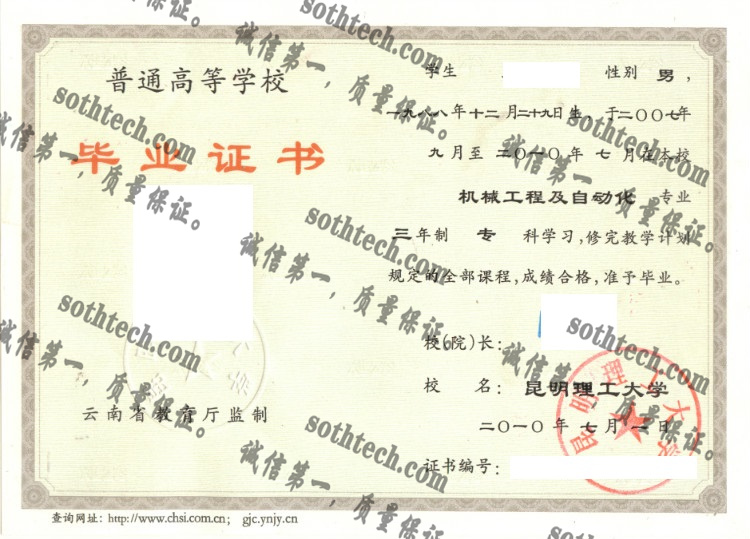 普通高等学校
毕业证书
云南省教育厅监制
学生 性别 男，
一九八八年十二月二十九日生，于二〇〇七年
九月至二〇一〇年七月在本校
机械工程及自动化 专业
三年制 专 科学习，修完教学计划
规定的全部课程，成绩合格，准予毕业。
校(院)长：
校 名：昆明理工大学
二〇一〇年七月一日
证书编号：
昆明理工大学
查询网址：http://www.chsi.com.cn; gjc.ynjy.cn
sothtech.com
诚信第一，质量保证。
sothtech.com
诚信第一，质量保证。
sothtech.com
诚信第一，质量保证。
sothtech.com
诚信第一，质量保证。
sothtech.com
诚信第一，质量保证。
sothtech.com
诚信第一，质量保证。
sothtech.com
诚信第一，质量保证。